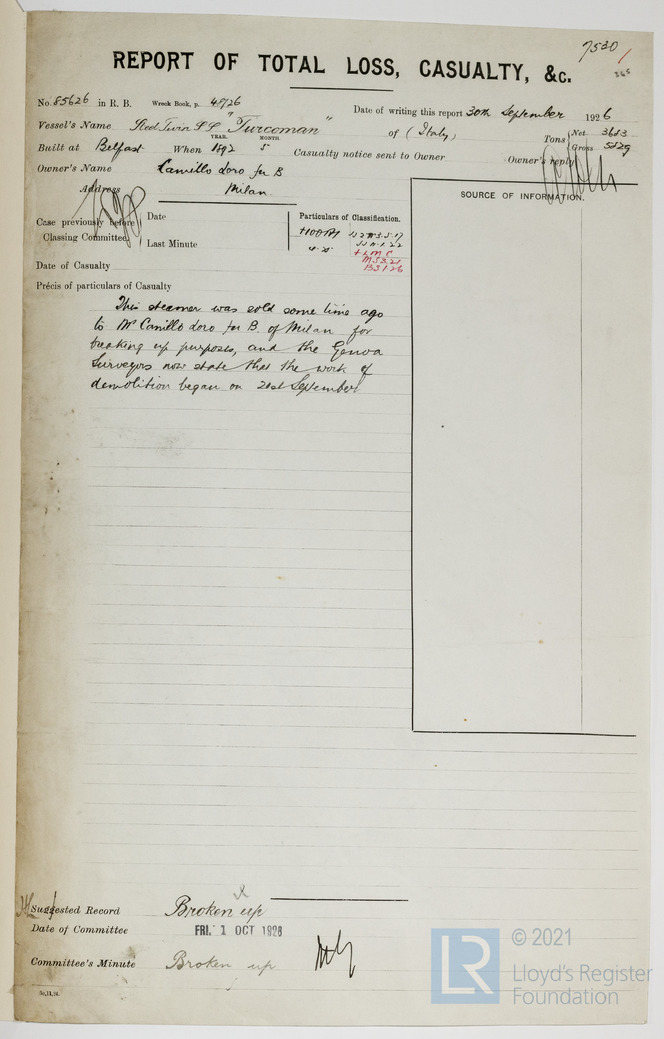 7530
REPORT OF TOTAL LOSS, CASUALTY, &c.
No. 85626 in R. B. Wreck Book, p. 48/26
Date of writing this report 30th September 1926
Vessel's Name Steel Twin SS "Turcoman" of (Italy)
Tons { Net 3653
Gross 5829
YEAR. MONTH
Built at Belfast When 1892 5 Casualty notice sent to Owner Owner's reply
Owner's Name Camillo Loro fu B
Address Milan
SOURCE OF INFORMATION.
Case previously before
Classing Committee
Date
Last Minute
Particulars of Classification.
+100A1
+LMC
MS 3.21
BS 1.26
Date of Casualty
Précis of particulars of Casualty
This steamer was sold some time ago
to Mr Camillo Loro fu B. of Milan for
breaking up purposes, and the Genoa
Surveyors now state that the work of
demolition began on 21st September
Suggested Record Broken up
Date of Committee FRI. 1 OCT 1926
Committee's Minute Broken up
LR
© 2021
Lloyd's Register
Foundation